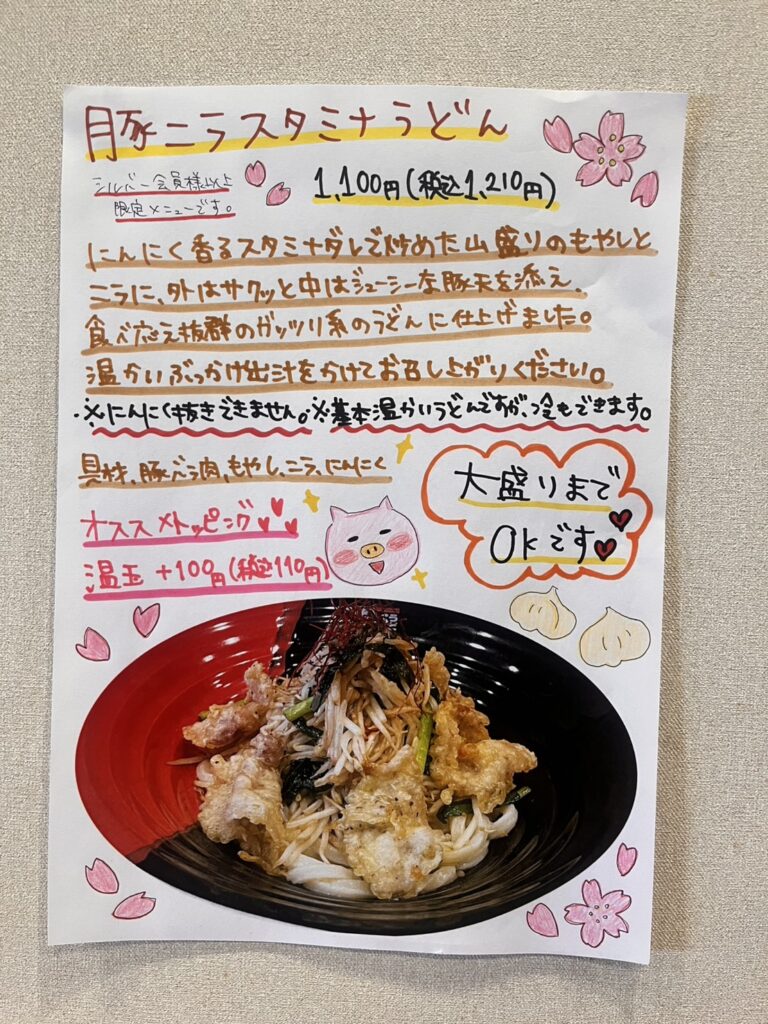 豚ニラスタミナうどん
シルバー会員様以上
限定メニューです。
1,100円(税込1,210円)
にんにく香るスタミナダレで炒めた山盛りのもやしと
ニラに、外はサクッと中はジューシーな豚天を添え、
食べ応え抜群のガッツリ系のうどんに仕上げました。
温かいぶっかけ出汁をかけてお召し上がりください。
※にんにく抜きできません。※基本温かいうどんですが、冷もできます。
具材、豚バラ肉、もやし、ニラ、にんにく
大盛りまで
OKです
オススメトッピング
温玉 +100円(税込110円)